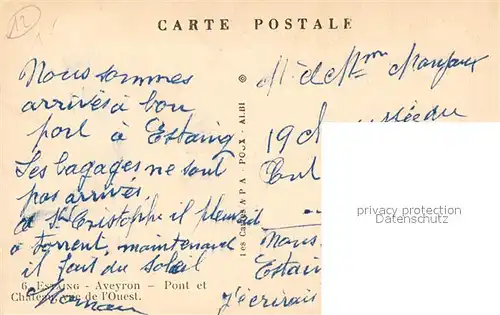 12
CARTE POSTALE
Nous sommes
arrivés à bon
port à Estaing
Les bagages ne sont
pas arrivés
à St Cristophe il pleuvait
à torrent, maintenant
il fait du soleil
Maman
6. ESTAING - Aveyron - Pont et
Château, vue de l'Ouest.
© Les Cartes A P A - POUX - ALBI
M. et Mme
19
Nous
Estaing
j'écrirai
privacy protection
Datenschutz